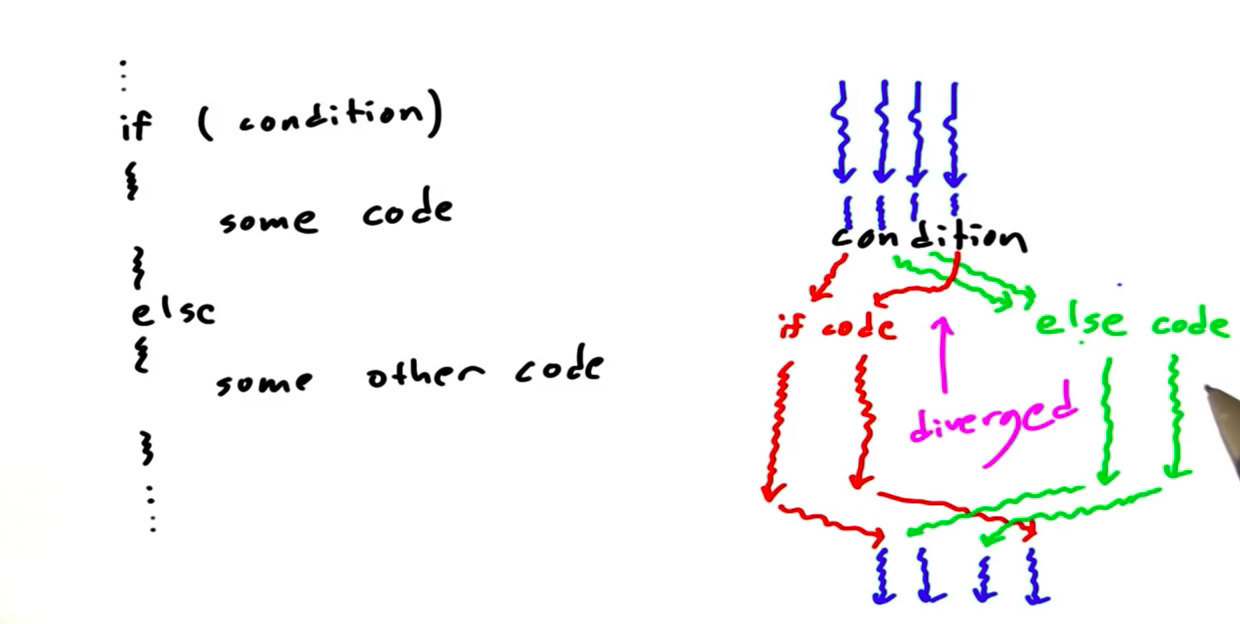 ⋮
if ( condition)
{
some code
}
else
{
some other code
}
⋮
condition
if code
else code
diverged